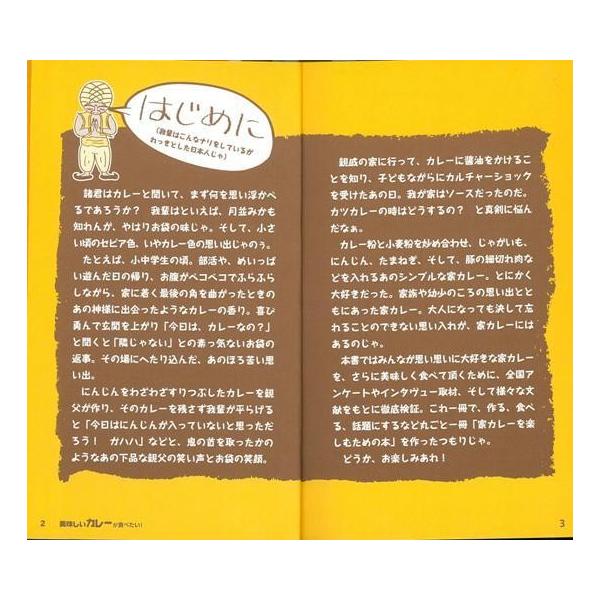 はじめに
(我輩はこんなナリをしているが
れっきとした日本人じゃ)
諸君はカレーと聞いて、まず何を思い浮かべ
るであろうか? 我輩はといえば、月並みかも
知れんが、やはりお袋の味じゃ。そして、小さ
い頃のセピア色、いやカレー色の思い出じゃのぅ。
たとえば、小中学生の頃。部活や、めいっぱ
い遊んだ日の帰り、お腹がペコペコでふらふら
しながら、家に着く最後の角を曲がったときの
あの神様に出会ったようなカレーの香り。喜び
勇んで玄関を上がり「今日は、カレーなの?」
と聞くと「隣じゃない」との素っ気ないお袋の
返事。その場にへたり込んだ、あのほろ苦い思
い出。
にんじんをわざわざすりつぶしたカレーを親
父が作り、そのカレーを残さず我輩が平らげる
と「今日はにんじんが入っていないと思っただ
ろう! ガハハ」などと、鬼の首を取ったかの
ようなあの下品な親父の笑い声とお袋の笑顔。
2 美味しいカレーが食べたい!
親戚の家に行って、カレーに醤油をかけるこ
とを知り、子どもながらにカルチャーショック
を受けたあの日。我が家はソースだったのだ。
カツカレーの時はどうするの? と真剣に悩ん
だなぁ。
カレー粉と小麦粉を炒め合わせ、じゃがいも、
にんじん、たまねぎ、そして、豚の細切れ肉な
どを入れるあのシンプルな家カレー。とにかく
大好きだった。家族や幼少のころの思い出とと
もにあった家カレー。大人になっても決して忘
れることのできない思い入れが、家カレーには
あるのじゃ。
本書ではみんなが思い思いに大好きな家カレー
を、さらに美味しく食べて頂くために、全国ア
ンケートやインタヴュー取材、そして様々な文
献をもとに徹底検証。これ一冊で、作る、食べ
る、話題にするなど丸ごと一冊「家カレーを楽
しむための本」を作ったつもりじゃ。
どうか、お楽しみあれ!
3